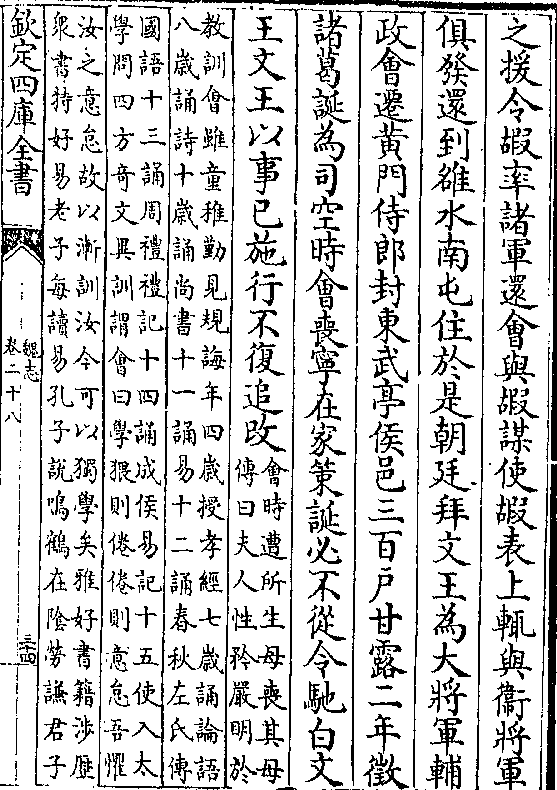 之援令嘏率諸軍還會與嘏謀使嘏表上輒與衞將軍
俱發還到雒水南屯住於是朝廷拜文王為大將軍輔
政會遷黄門侍郎封東武亭侯邑三百户甘露二年徵
諸葛誕為司空時會喪寧在家策誕必不從令馳白文
王文王以事已施行不復追改
會時遭所生母喪其母
傳曰夫人性矜嚴明於
教訓會雖童稚勤見規誨年四歲授孝經七歲誦論語
八歲誦詩十歲誦尚書十一誦易十二誦春秋左氏傳
國語十三誦周禮禮記十四誦成侯易記十五使入太
學問四方奇文異訓謂會曰學猥則倦倦則意怠吾懼
汝之意怠故以漸訓汝今可以獨學矣雅好書籍涉歷
衆書特好易老子每讀易孔子說鳴鶴在陰勞謙君子
欽定四庫全書
魏志
卷二十八
三十四